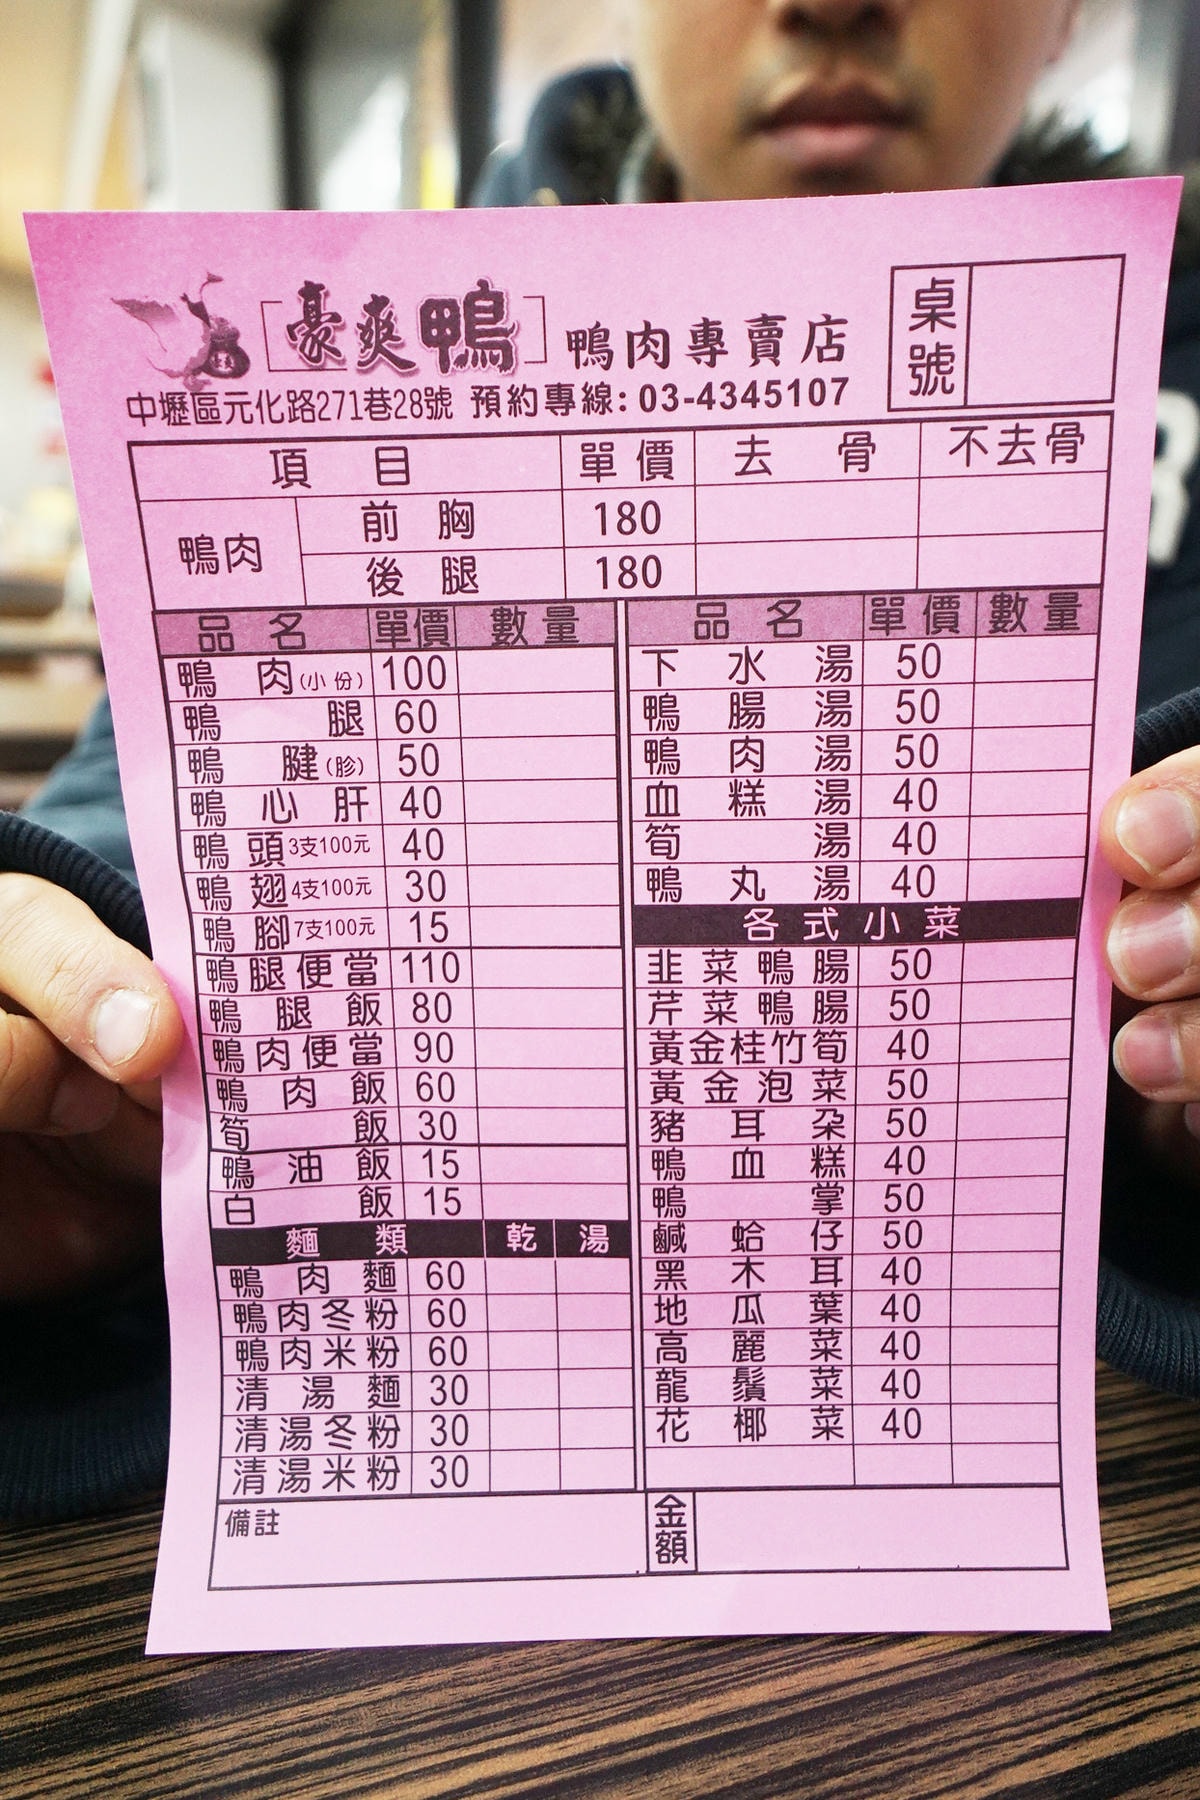 豪爽鴨 鴨肉專賣店
桌號
中壢區元化路271巷28號 預約專線:03-4345107
項目 單價 去骨 不去骨
鴨肉 前胸 180
後腿 180
品名 單價 數量
鴨肉(小份) 100
鴨腿 60
鴨腱(胗) 50
鴨心肝 40
鴨頭3支100元 40
鴨翅4支100元 30
鴨腳7支100元 15
鴨腿便當 110
鴨腿飯 80
鴨肉便當 90
鴨肉飯 60
筍飯 30
鴨油飯 15
白飯 15
麵類 乾 湯
鴨肉麵 60
鴨肉冬粉 60
鴨肉米粉 60
清湯麵 30
清湯冬粉 30
清湯米粉 30
品名 單價 數量
下水湯 50
鴨腸湯 50
鴨肉湯 50
血糕湯 40
筍湯 40
鴨丸湯 40
各式小菜
韭菜鴨腸 50
芹菜鴨腸 50
黃金桂竹筍 40
黃金泡菜 50
豬耳朶 50
鴨血糕 40
鴨掌 50
鹹蛤仔 50
黑木耳 40
地瓜葉 40
高麗菜 40
龍鬚菜 40
花椰菜 40
備註
金額